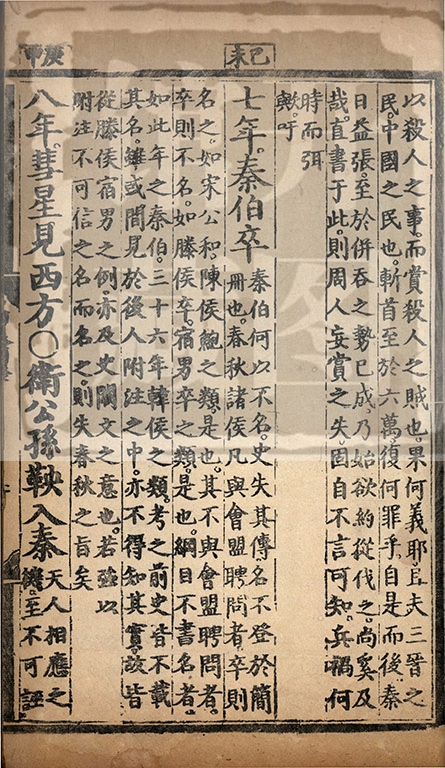 巳未
以殺人之事而賞殺人之賊也果何義耶且夫三晉之
民中國之民也斬首至於六萬復何罪乎自是而後秦
日益張至於併吞之勢已成乃始欲約從伐之尚奚及
哉直書于此則周人妄賞之失固自不言可知兵禍何
時而弭
歟吁
七年秦伯卒
秦伯何以不名史失其傳名不登於簡
冊也春秋諸侯凡與會盟聘問者卒則
名之如宋公和陳侯鮑之類是也其不與會盟聘問者
卒則不名如滕侯卒宿男卒之類是也綱目不書名者
如此年之秦伯三十六年韓侯之類考之前史皆不載
其名雖或間見於後人附注之中亦不得知其實故皆
從滕侯宿男之例亦及史闕文之意也若強以
附注不可信之名而名之則失春秋之旨矣
庚申
八年彗星見西方○衛公孫鞅入秦
天人相應之
機至不可誣